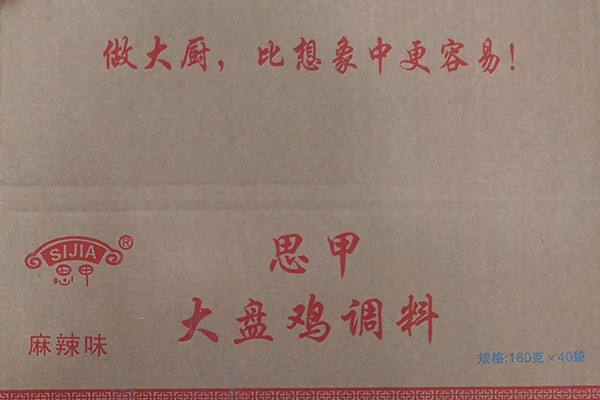 做大厨，比想象中更容易！
SIJIA®
思甲
思甲
大盘鸡调料
麻辣味
规格:180克×40袋